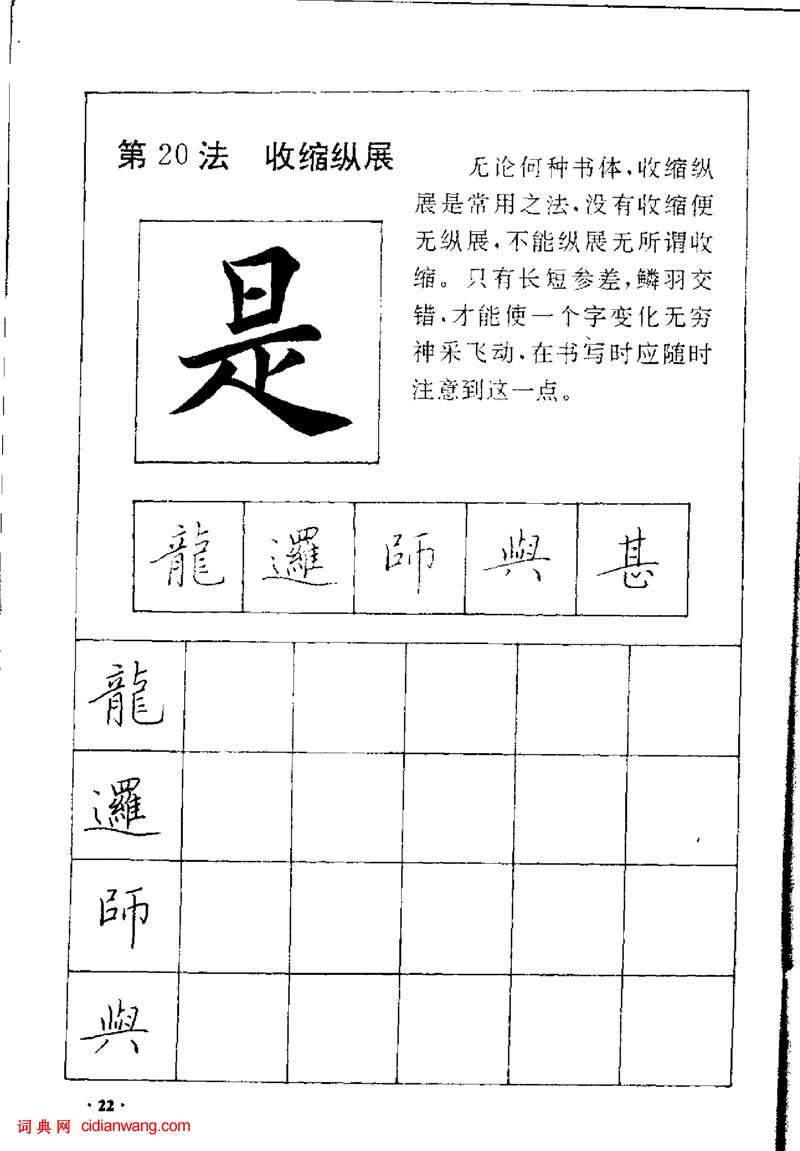 第20法 收缩纵展
无论何种书体，收缩纵
展是常用之法，没有收缩便
无纵展，不能纵展无所谓收
缩。只有长短参差，鳞羽交
错，才能使一个字变化无穷
神采飞动，在书写时应随时
注意到这一点。
是
龍 邏 師 與 甚
龍
邏
師
與
·22·
词典网 cidianwang.com